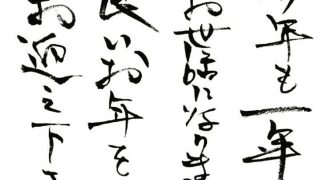 今年も一年
お世話になりま
良いお年を
お迎え下さ